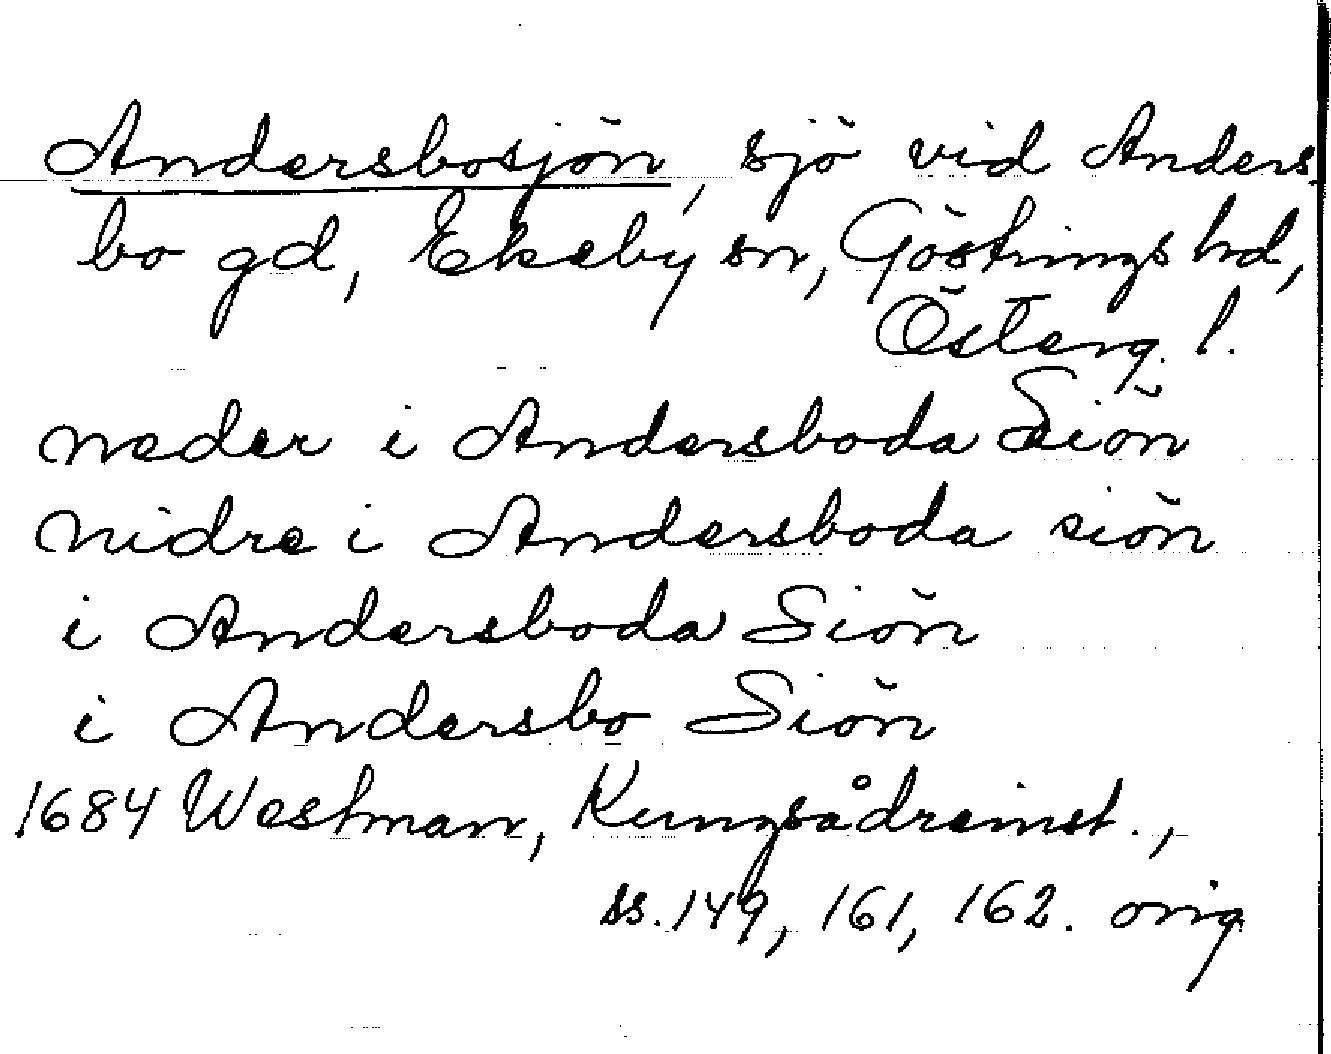 Andersbosjön, sjö vid Anders-
bo gd, Ekeby sn, Göstrings hd,
Österg. l.
neder i Andersboda Siön
nidre i Andersboda siön
i Andersboda Siön
i Andersbo Siön
1684 Westman, Kungsådreinst.,
ss. 149, 161, 162. orig